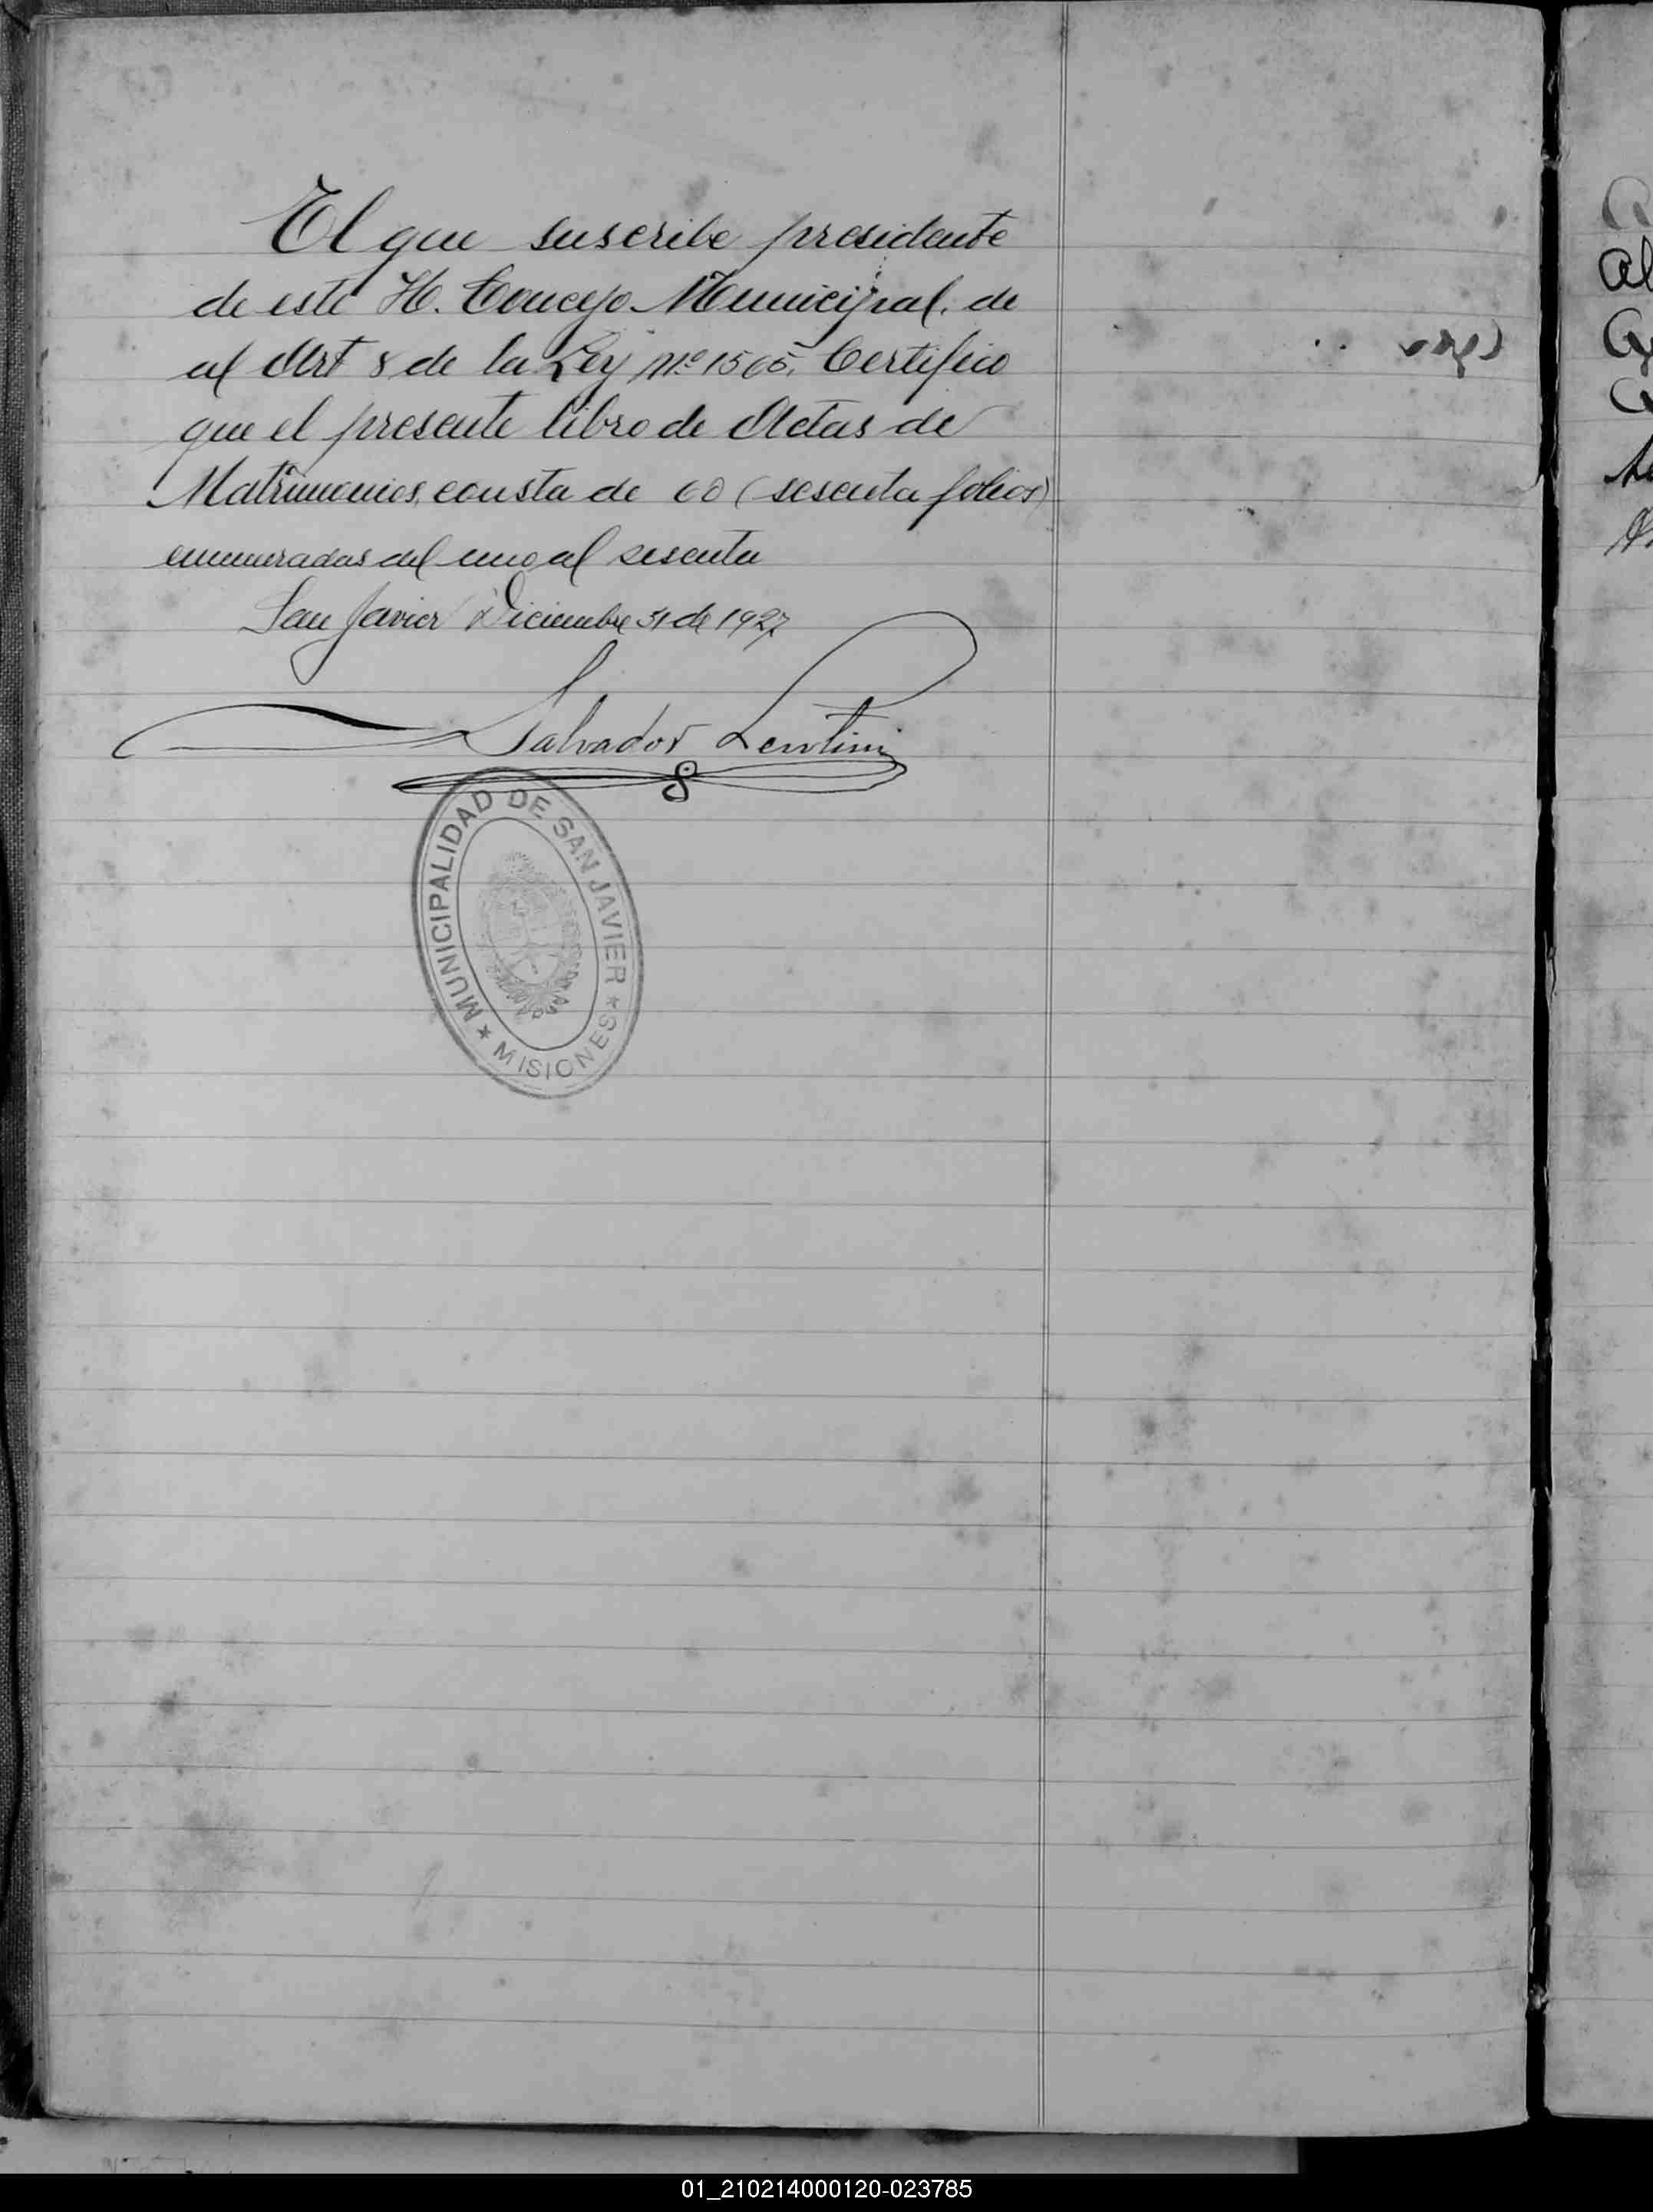 El que suscribe presidente
de este H. Concejo Municipal. de
al Art 8 de la Ley Nº 1565, Certifico
que el presente libro de Actas de
Matrimonios, consta de 60 (sesenta folios)
enumeradas del uno al sesenta
San Javier Diciembre 31 de 1927
Salvador Lentini
MUNICIPALIDAD DE SAN JAVIER
★ MISIONES ★
01_210214000120-023785